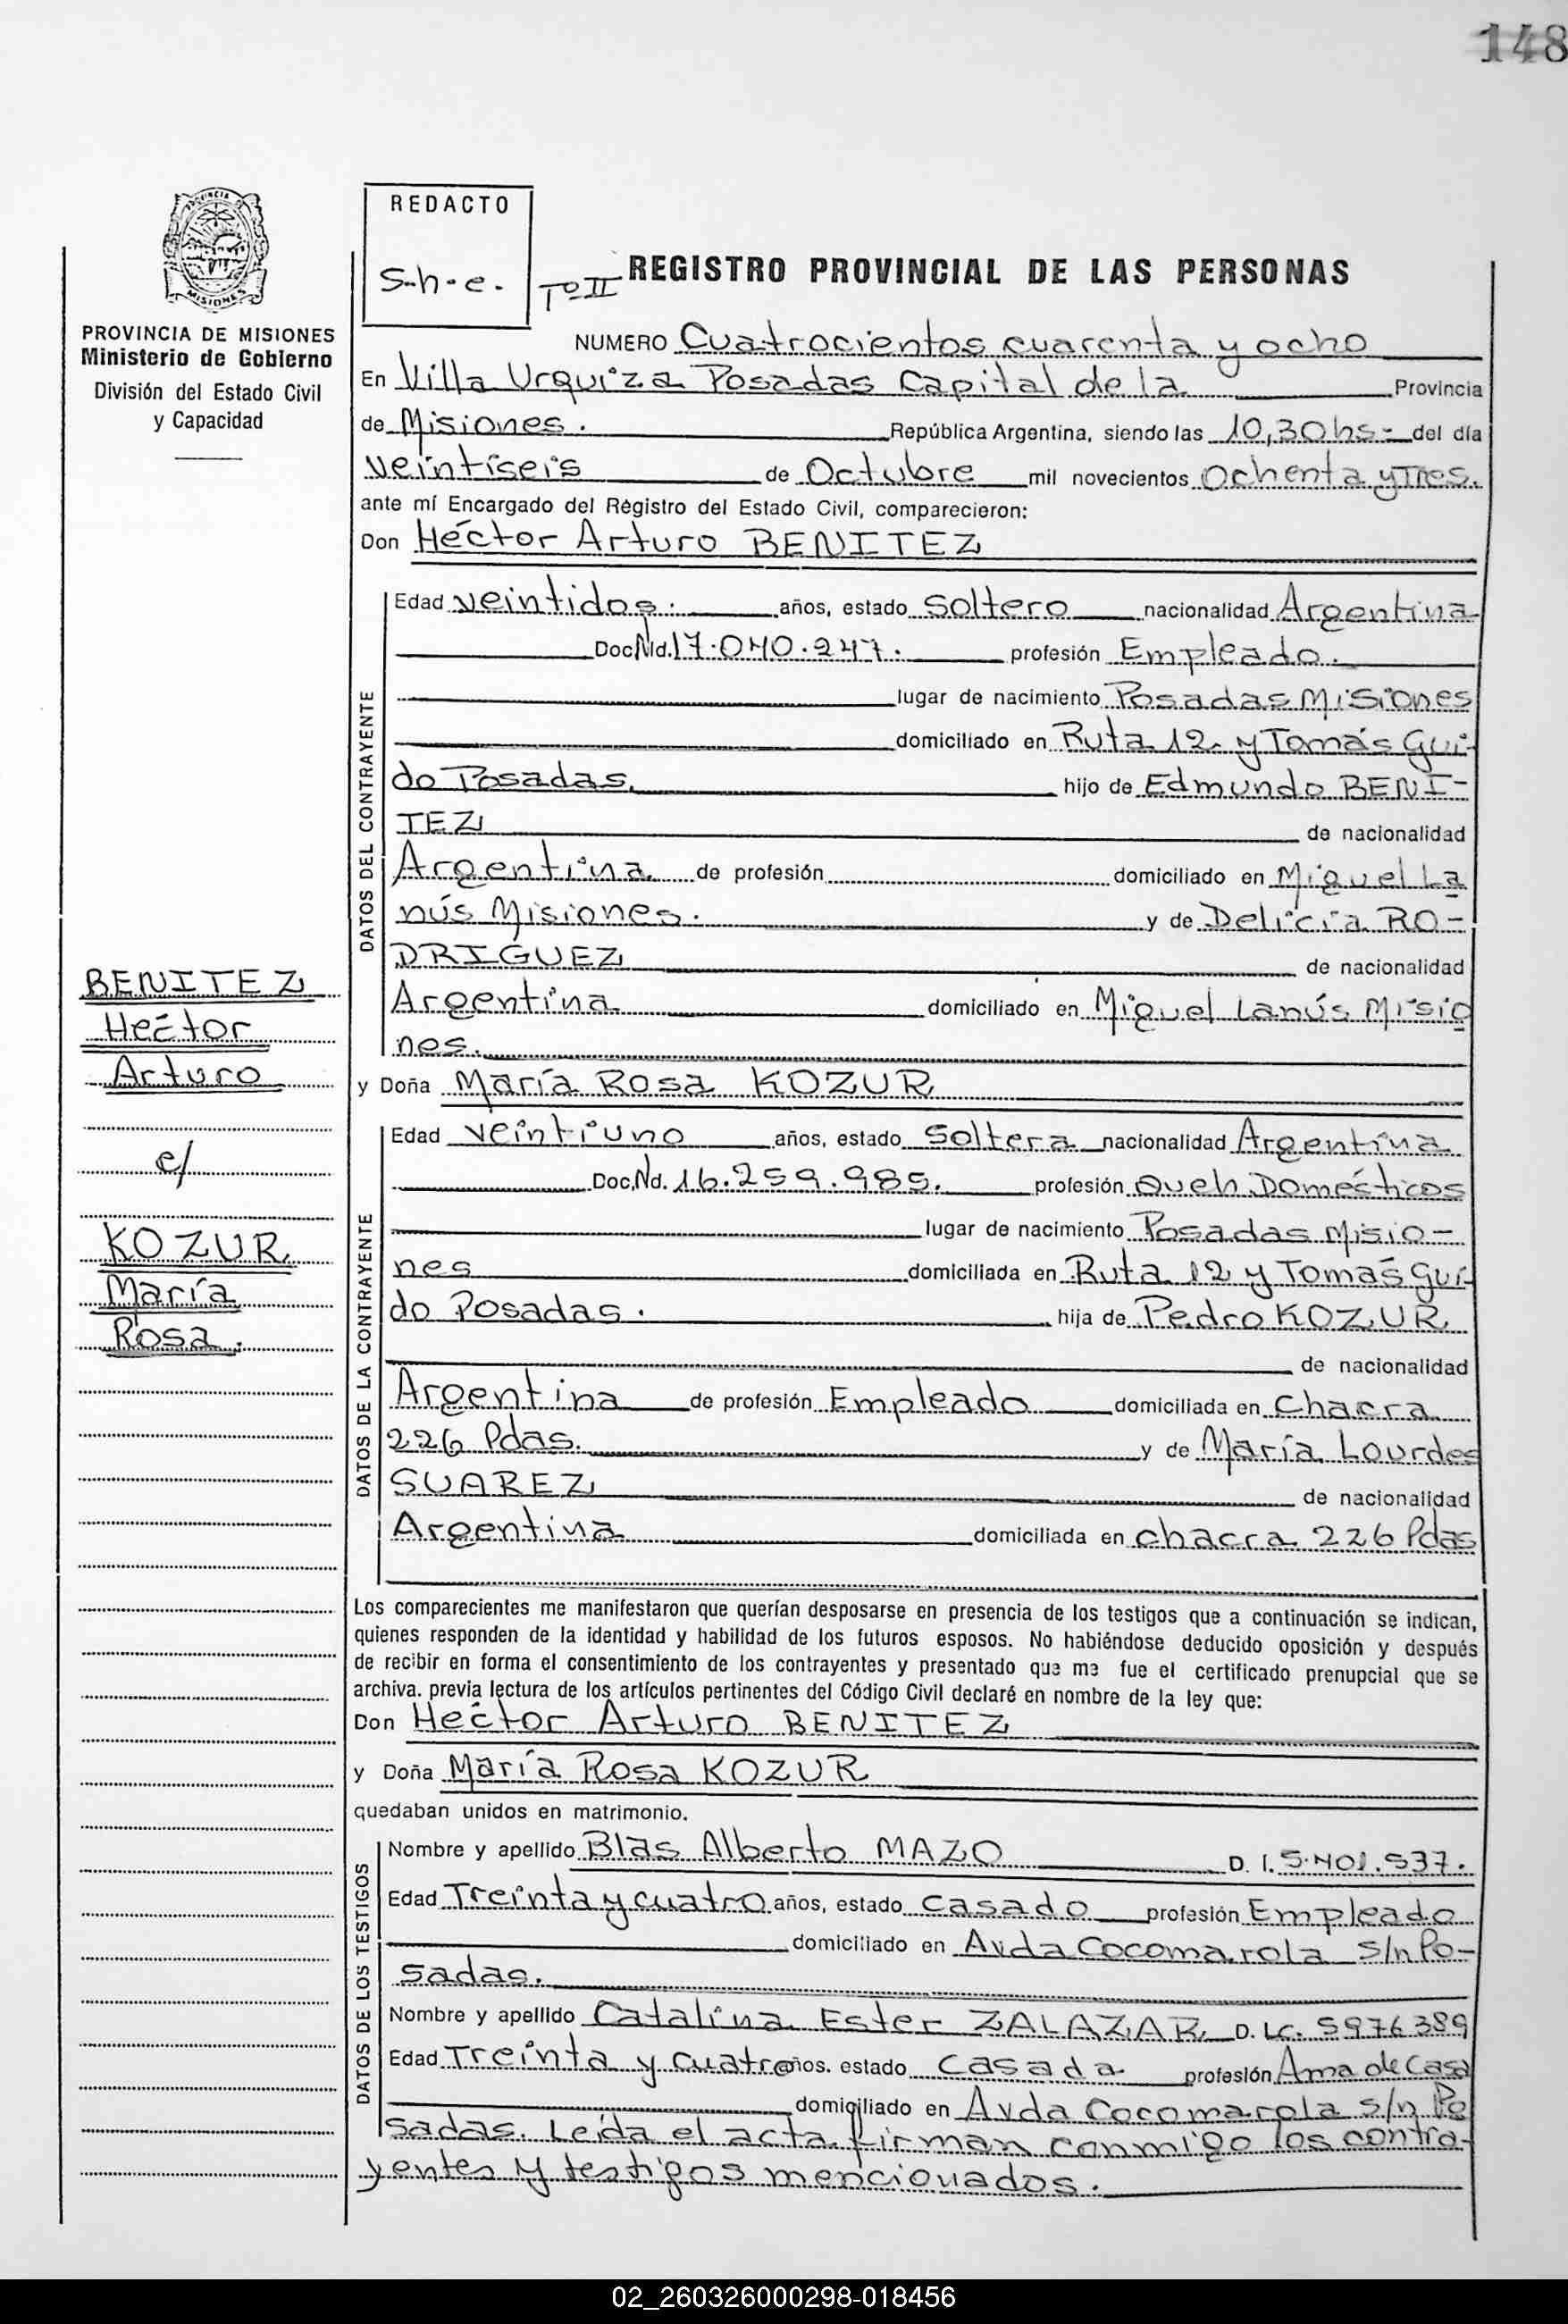 148
REDACTO
S.h.e.
Tº II
REGISTRO PROVINCIAL DE LAS PERSONAS
PROVINCIA DE MISIONES
Ministerio de Gobierno
División del Estado Civil
y Capacidad
NUMERO Cuatrocientos cuarenta y ocho
En Villa Urquiza Posadas Capital de la Provincia
de Misiones. República Argentina, siendo las 10,30 hs- del día
veintiseis de Octubre mil novecientos Ochenta y Tres.
ante mí Encargado del Registro del Estado Civil, comparecieron:
Don Héctor Arturo BENITEZ
DATOS DEL CONTRAYENTE
Edad veintidos. años, estado Soltero nacionalidad Argentina
Doc. Nd. 17.040.247. profesión Empleado.
lugar de nacimiento Posadas Misiones
domiciliado en Ruta 12 y Tomás Gui-
do Posadas. hijo de Edmundo BENI-
TEZ de nacionalidad
Argentina de profesión domiciliado en Miguel La
nús Misiones. y de Delicia RO-
DRIGUEZ de nacionalidad
Argentina domiciliado en Miguel Lanús Misio
nes.
BENITEZ
Héctor
Arturo
c/
KOZUR
María
Rosa.
y Doña María Rosa KOZUR
DATOS DE LA CONTRAYENTE
Edad veintiuno años, estado Soltera nacionalidad Argentina
Doc. Nd. 16.259.985. profesión Queh Domésticos
lugar de nacimiento Posadas Misio-
nes domiciliada en Ruta 12 y Tomás Gui-
do Posadas. hija de Pedro KOZUR
de nacionalidad
Argentina de profesión Empleado domiciliada en Chacra
226 Pdas. y de María Lourdes
SUAREZ de nacionalidad
Argentina domiciliada en chacra 226 Pdas
Los comparecientes me manifestaron que querían desposarse en presencia de los testigos que a continuación se indican,
quienes responden de la identidad y habilidad de los futuros esposos. No habiéndose deducido oposición y después
de recibir en forma el consentimiento de los contrayentes y presentado que me fue el certificado prenupcial que se
archiva. previa lectura de los artículos pertinentes del Código Civil declaré en nombre de la ley que:
Don Héctor Arturo BENITEZ
y Doña María Rosa KOZUR
quedaban unidos en matrimonio.
DATOS DE LOS TESTIGOS
Nombre y apellido Blas Alberto MAZO D. I. 5.401.537.
Edad Treinta y cuatro años, estado casado profesión Empleado
domiciliado en Avda Cocomarola s/n Po-
sadas.
Nombre y apellido Catalina Ester ZALAZAR D. LC. 5976389
Edad Treinta y cuatro años. estado casada profesión Ama de Casa
domiciliado en Avda Cocomarola s/n Po
sadas. Leída el acta firman conmigo los contra-
yentes y testigos mencionados.
02_260326000298-018456